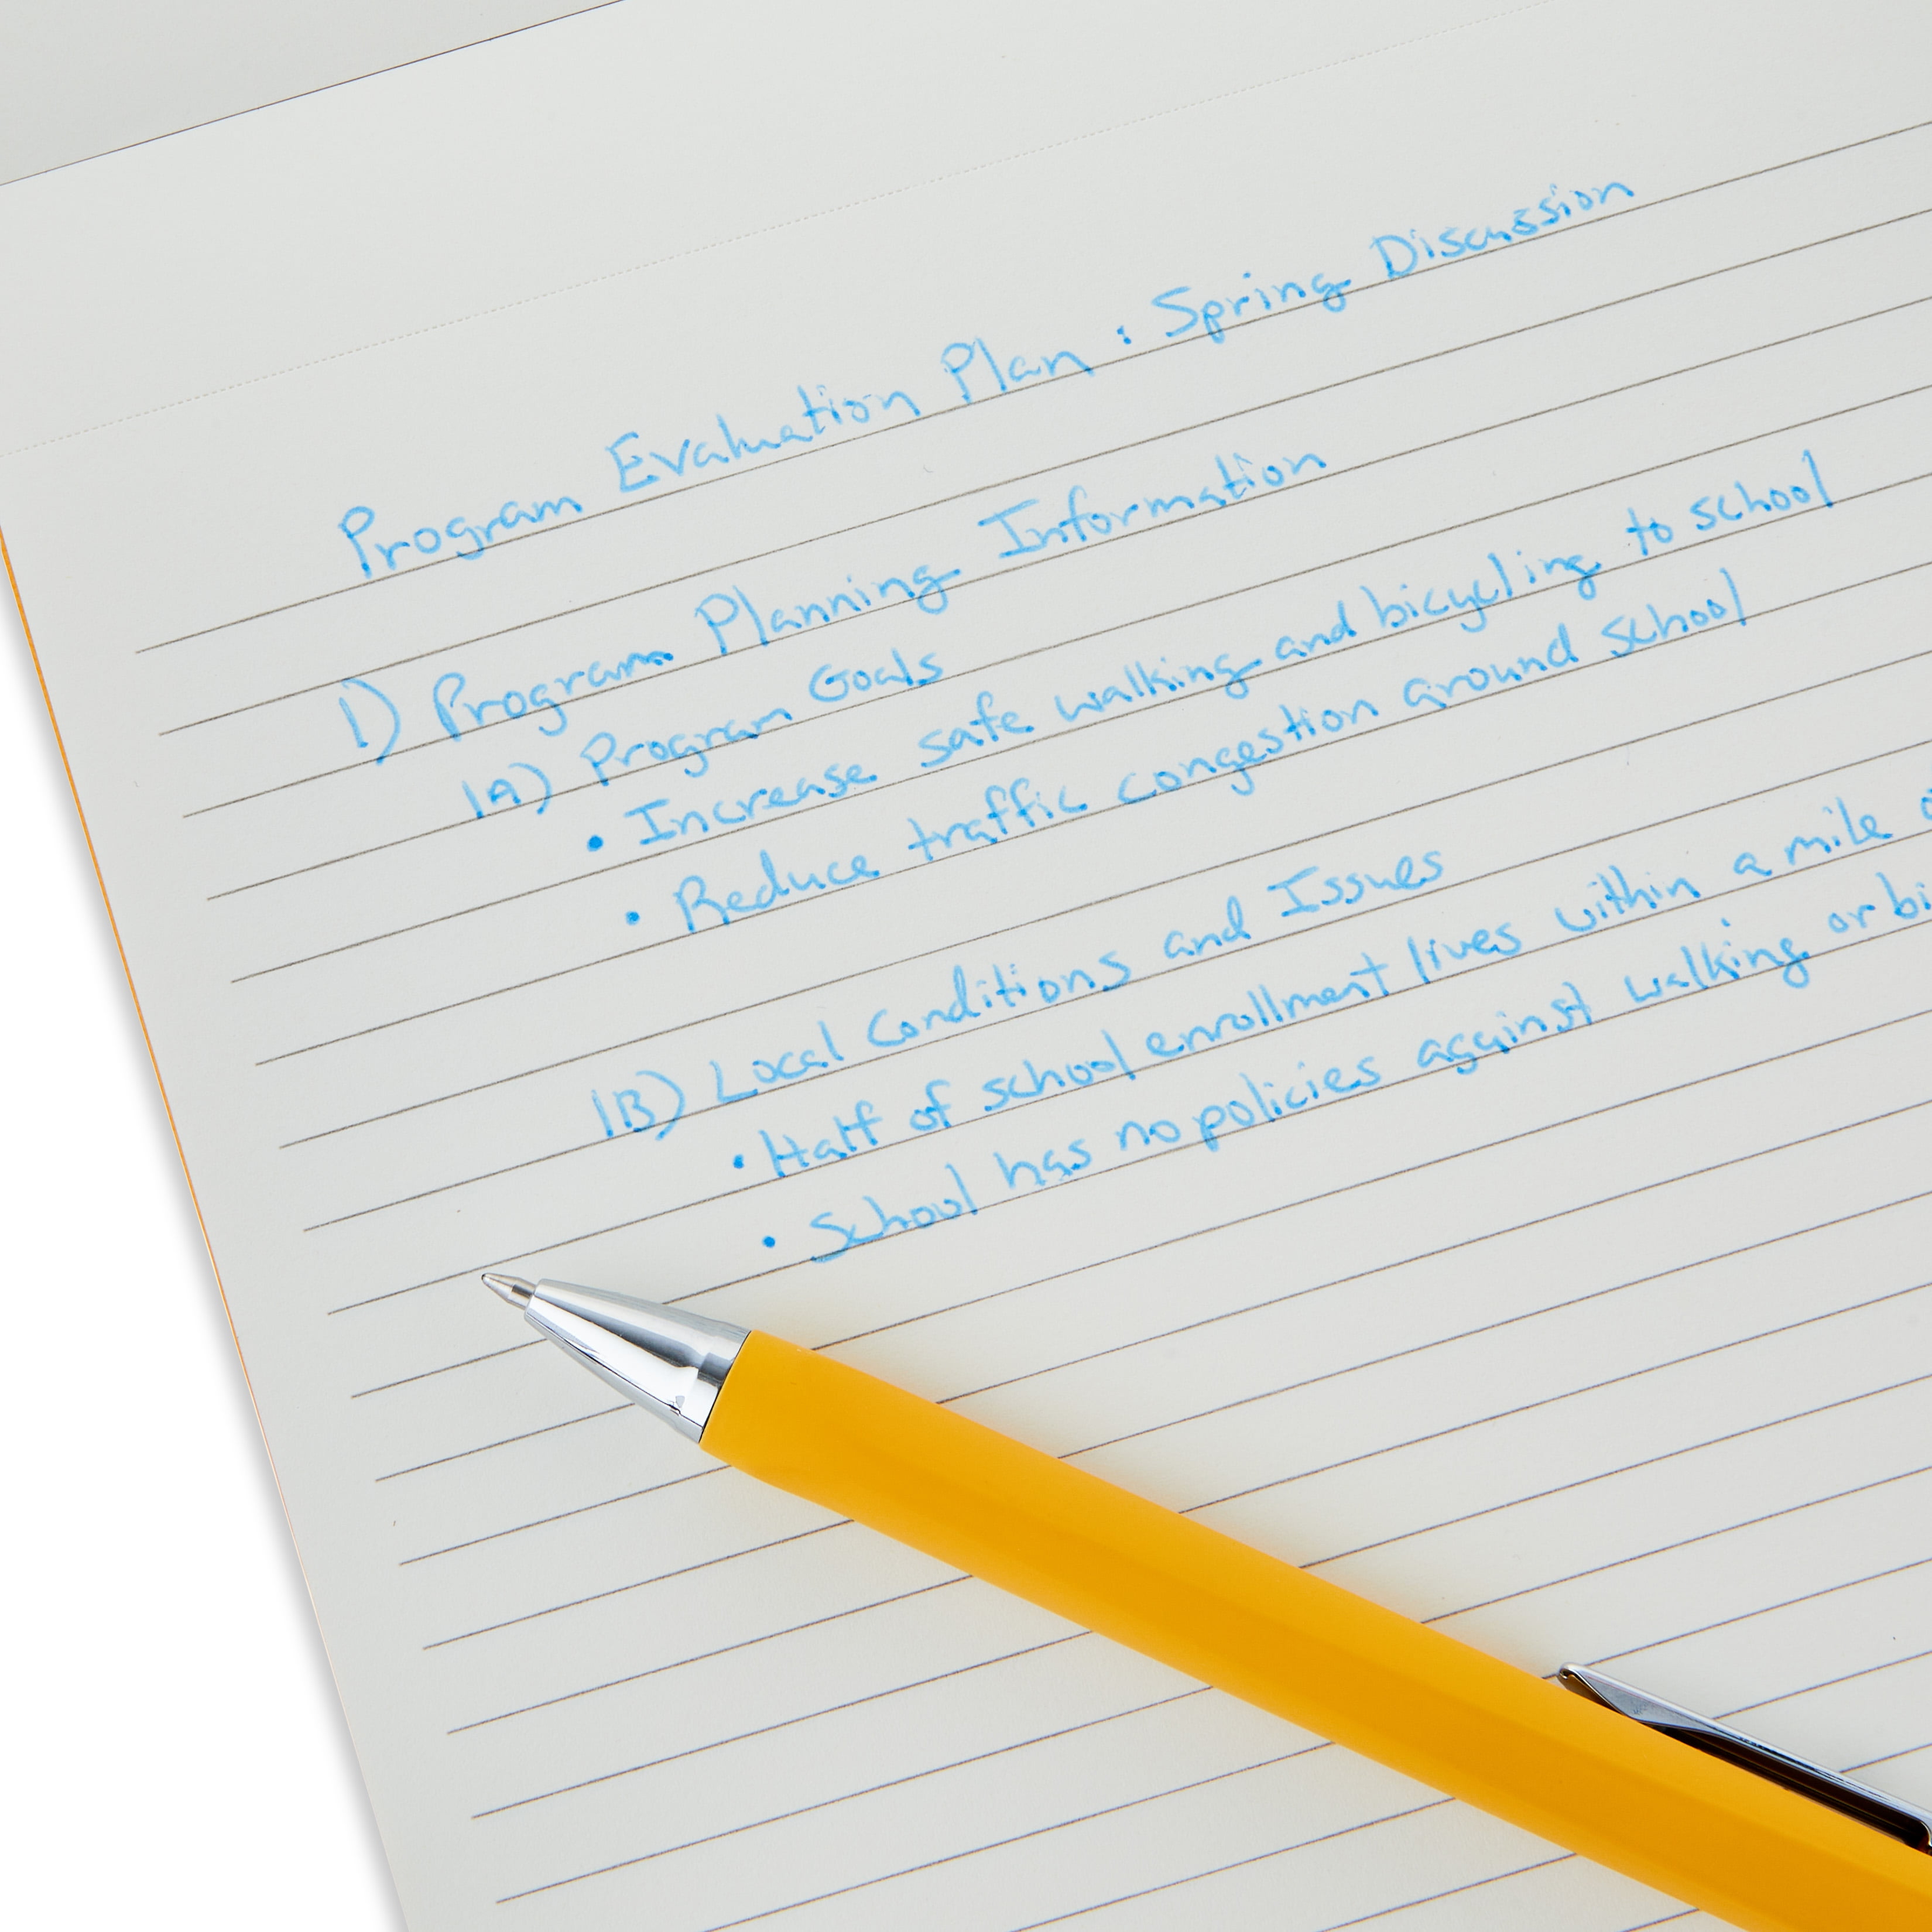 Program Evaluation Plan : Spring Discussion
1) Program Planning Information
1A) Program Goals
• Increase safe walking and bicycling to school
• Reduce traffic congestion around school
1B) Local Conditions and Issues
• Half of school enrollment lives within a mile
• School has no policies against walking or bi